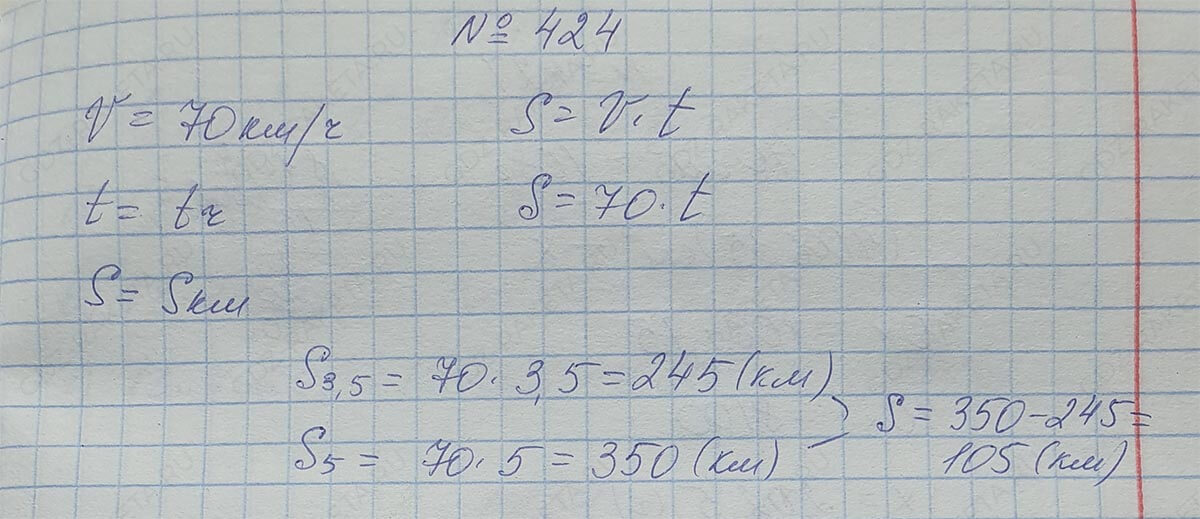 № 424
V = 70 км/ч S = V · t
t = t ч S = 70 · t
S = S км
S3,5 = 70 · 3,5 = 245 (км)
S5 = 70 · 5 = 350 (км)
S = 350 - 245 =
105 (км)